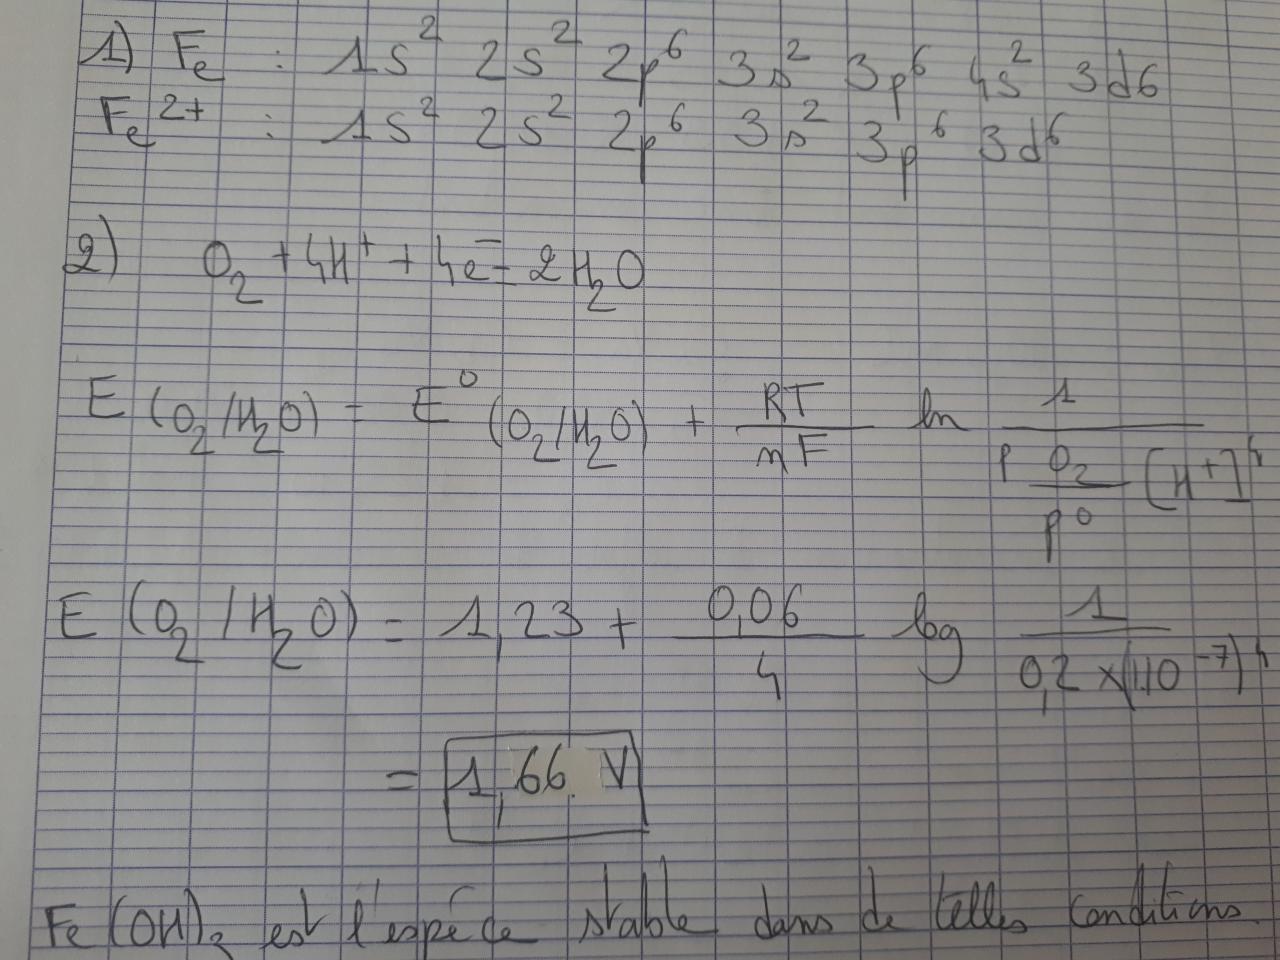 1) Fe : 1s² 2s² 2p⁶ 3s² 3p⁶ 4s² 3d6
Fe²⁺ : 1s² 2s² 2p⁶ 3s² 3p⁶ 3d⁶
2) O₂ + 4H⁺ + 4e⁻ = 2H₂O
E (O₂/H₂O) = E⁰ (O₂/H₂O) + RT/nF ln 1/(pO₂/p⁰ [H⁺]⁴)
E (O₂/H₂O) = 1,23 + 0,06/4 log 1/(0,2 × (1.10⁻⁷)⁴)
= 1,66 V
Fe(OH)₃ est l'espéce stable dans de telles conditions.